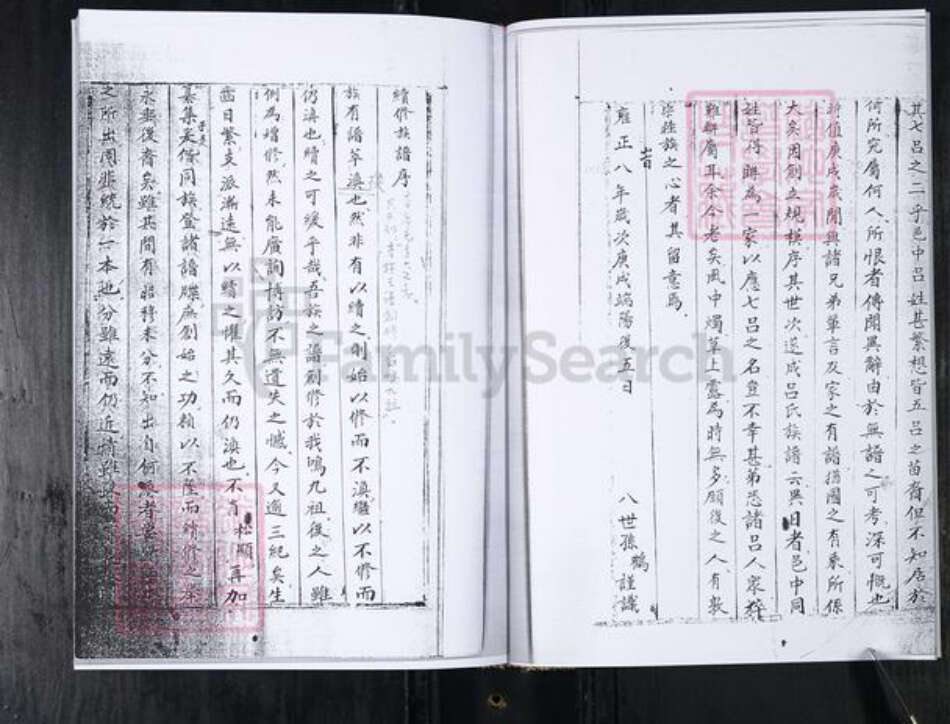 其七呂之二乎邑中呂姓甚繁想皆五呂之苗裔但不知居於
何所究屬何人所恨者傳聞異辭由於無譜之可考深可慨也
時值庚戌歲閒與諸兄弟輩言及家之有譜猶國之有乘所係
大矣因創立規模序其世次遂成呂氏族譜云異日者邑中同
姓皆得聯為一家以應七呂之名豈不幸甚弟恐諸呂人眾
難耳余今老矣風中燭草上露為時無多願後之人有敦
崇族之心者其留意焉
旹
雍正八年歲次庚戌端陽後五日
八世孫鶴謹識
續修族譜序
族有譜萃渙也然非有以續之則始以修而不渙繼以不修而
仍渙也續之可緩乎哉吾族之譜創修於我鳴九祖後之人雖
例為增修然未能廣詢博訪不無遺失之憾今又適三紀矣生
齒日繁支派滿遠無以續之懼其久而仍渙也不肖松顯再加
纂集爰偕同族登諸譜牒庶創始之功賴以不墜而續修之
永垂後裔矣雖其間有昭穆未分不知出自何者
之所出固非統於一本也分雖遠而仍近情雖
FamilySearch